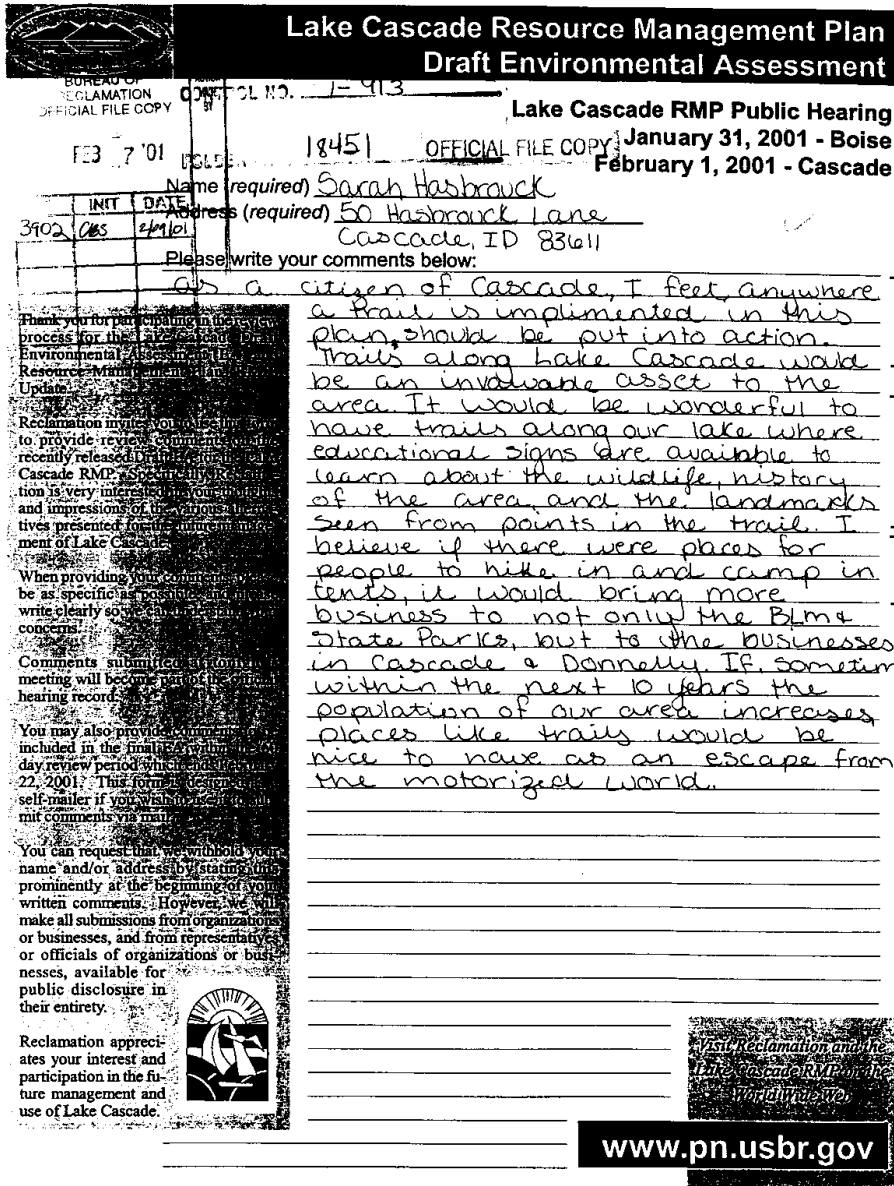 Lake Cascade Resource Management Plan
Draft Environmental Assessment
BUREAU OF
RECLAMATION
OFFICIAL FILE COPY
NO. 1-913
FEB 7 '01
18451 OFFICIAL FILE COPY
Lake Cascade RMP Public Hearing
January 31, 2001 - Boise
February 1, 2001 - Cascade
INIT DATE
3902
Name (required) Sarah Hasbrouck
Address (required) 50 Hasbrouck Lane
Cascade, ID 83611
Please write your comments below:
as a citizen of Cascade, I feel, anywhere
a trail is implimented in this
plan, should be put into action.
Trails along Lake Cascade would
be an invaluable asset to the
area. It would be wonderful to
have trails along our lake where
educational signs are available to
learn about the wildlife, history
of the area, and the landmarks
seen from points in the trail. I
believe if there were places for
people to hike in and camp in
tents, it would bring more
business to not only the BLM &
State Parks, but to the businesses
in Cascade & Donnelly. If, sometim
within the next 10 years the
population of our area increases,
places like trails would be
nice to have as an escape from
the motorized world.
Thank you for participating in the review
process for the Lake Cascade Draft
Environmental Assessment
Resource Management
Update.
Reclamation invites you to use this form
to provide review comments on the
recently released Draft EA for the Lake
Cascade RMP. Specifically, Reclama-
tion is very interested in your thoughts
and impressions of the various alterna-
tives presented for the future manage-
ment of Lake Cascade.
When providing your comments
be as specific as possible and
write clearly so we can understand your
concerns.
Comments submitted at tonight's
meeting will become part of the official
hearing record.
You may also provide comments
included in the final EA within the
day review period which ends
22, 2001. This form is designed
self-mailer if you wish to
mit comments via mail.
You can request that we withhold your
name and/or address by stating this
prominently at the beginning of your
written comments. However, we will
make all submissions from organizations
or businesses, and from representatives
or officials of organizations or busi-
nesses, available for
public disclosure in
their entirety.
Reclamation appreci-
ates your interest and
participation in the fu-
ture management and
use of Lake Cascade.
Visit Reclamation and the
Lake Cascade RMP on the
World Wide Web
www.pn.usbr.gov